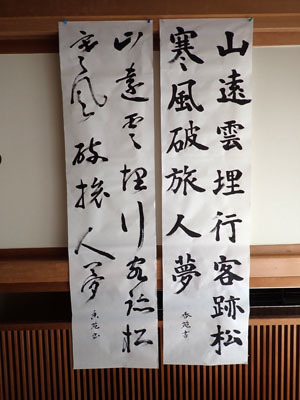 山遠雲埋行客跡松
寒風破旅人夢
香苑書
山遠雲埋行客跡松
寒風破旅人夢
香苑書